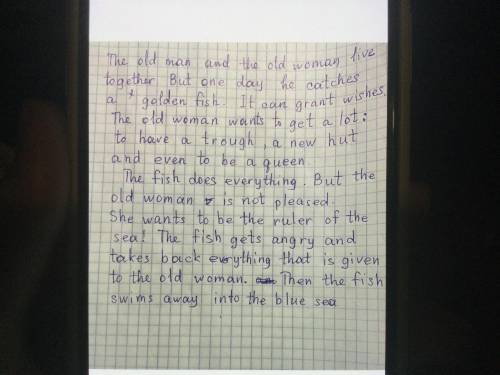 The old man and the old woman live
together. But one day he catches
a golden fish. It can grant wishes.
The old woman wants to get a lot:
to have a trough, a new hut
and even to be a queen.
The fish does everything. But the
old woman is not pleased.
She wants to be the ruler of the
sea! The fish gets angry and
takes back everything that is given
to the old woman. Then the fish
swims away into the blue sea